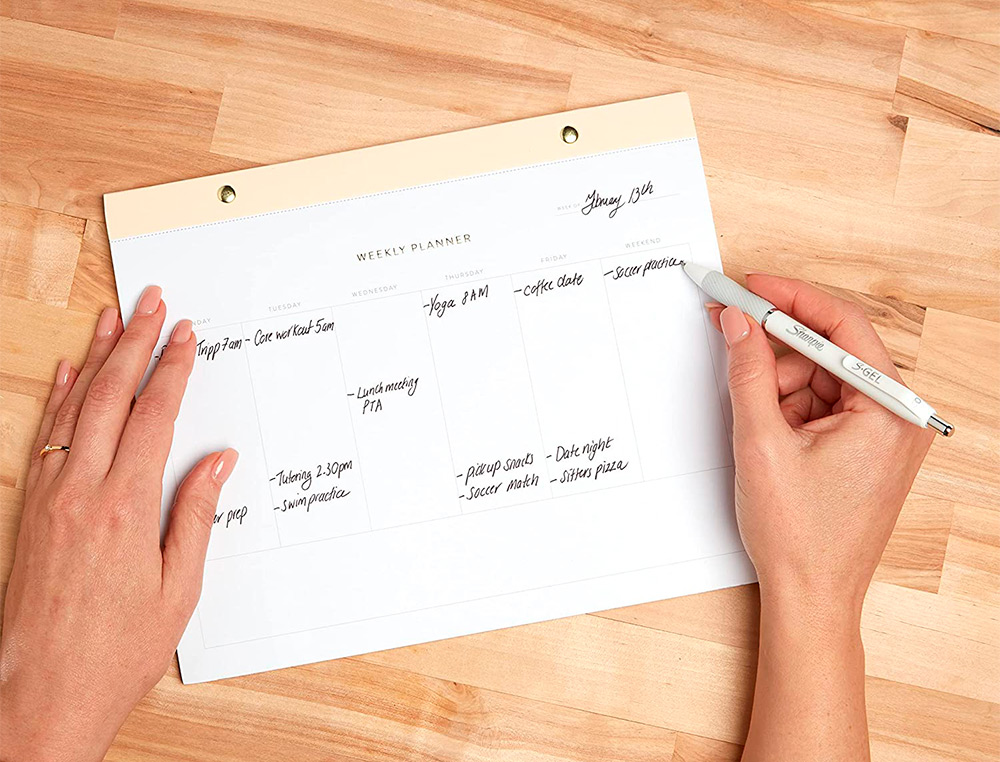 WEEK OF February 13th
WEEKLY PLANNER
TUESDAY
WEDNESDAY
THURSDAY
FRIDAY
WEEKEND
Tripp 7am
- Core workout 5am
- Lunch meeting
PTA
- Yoga 8AM
- Coffee date
- Soccer practice
prep
- Tutoring 2.30pm
- Swim practice
- pick up snacks
- Soccer match
- Date night
- Sitters pizza
Sharpie
S·GEL